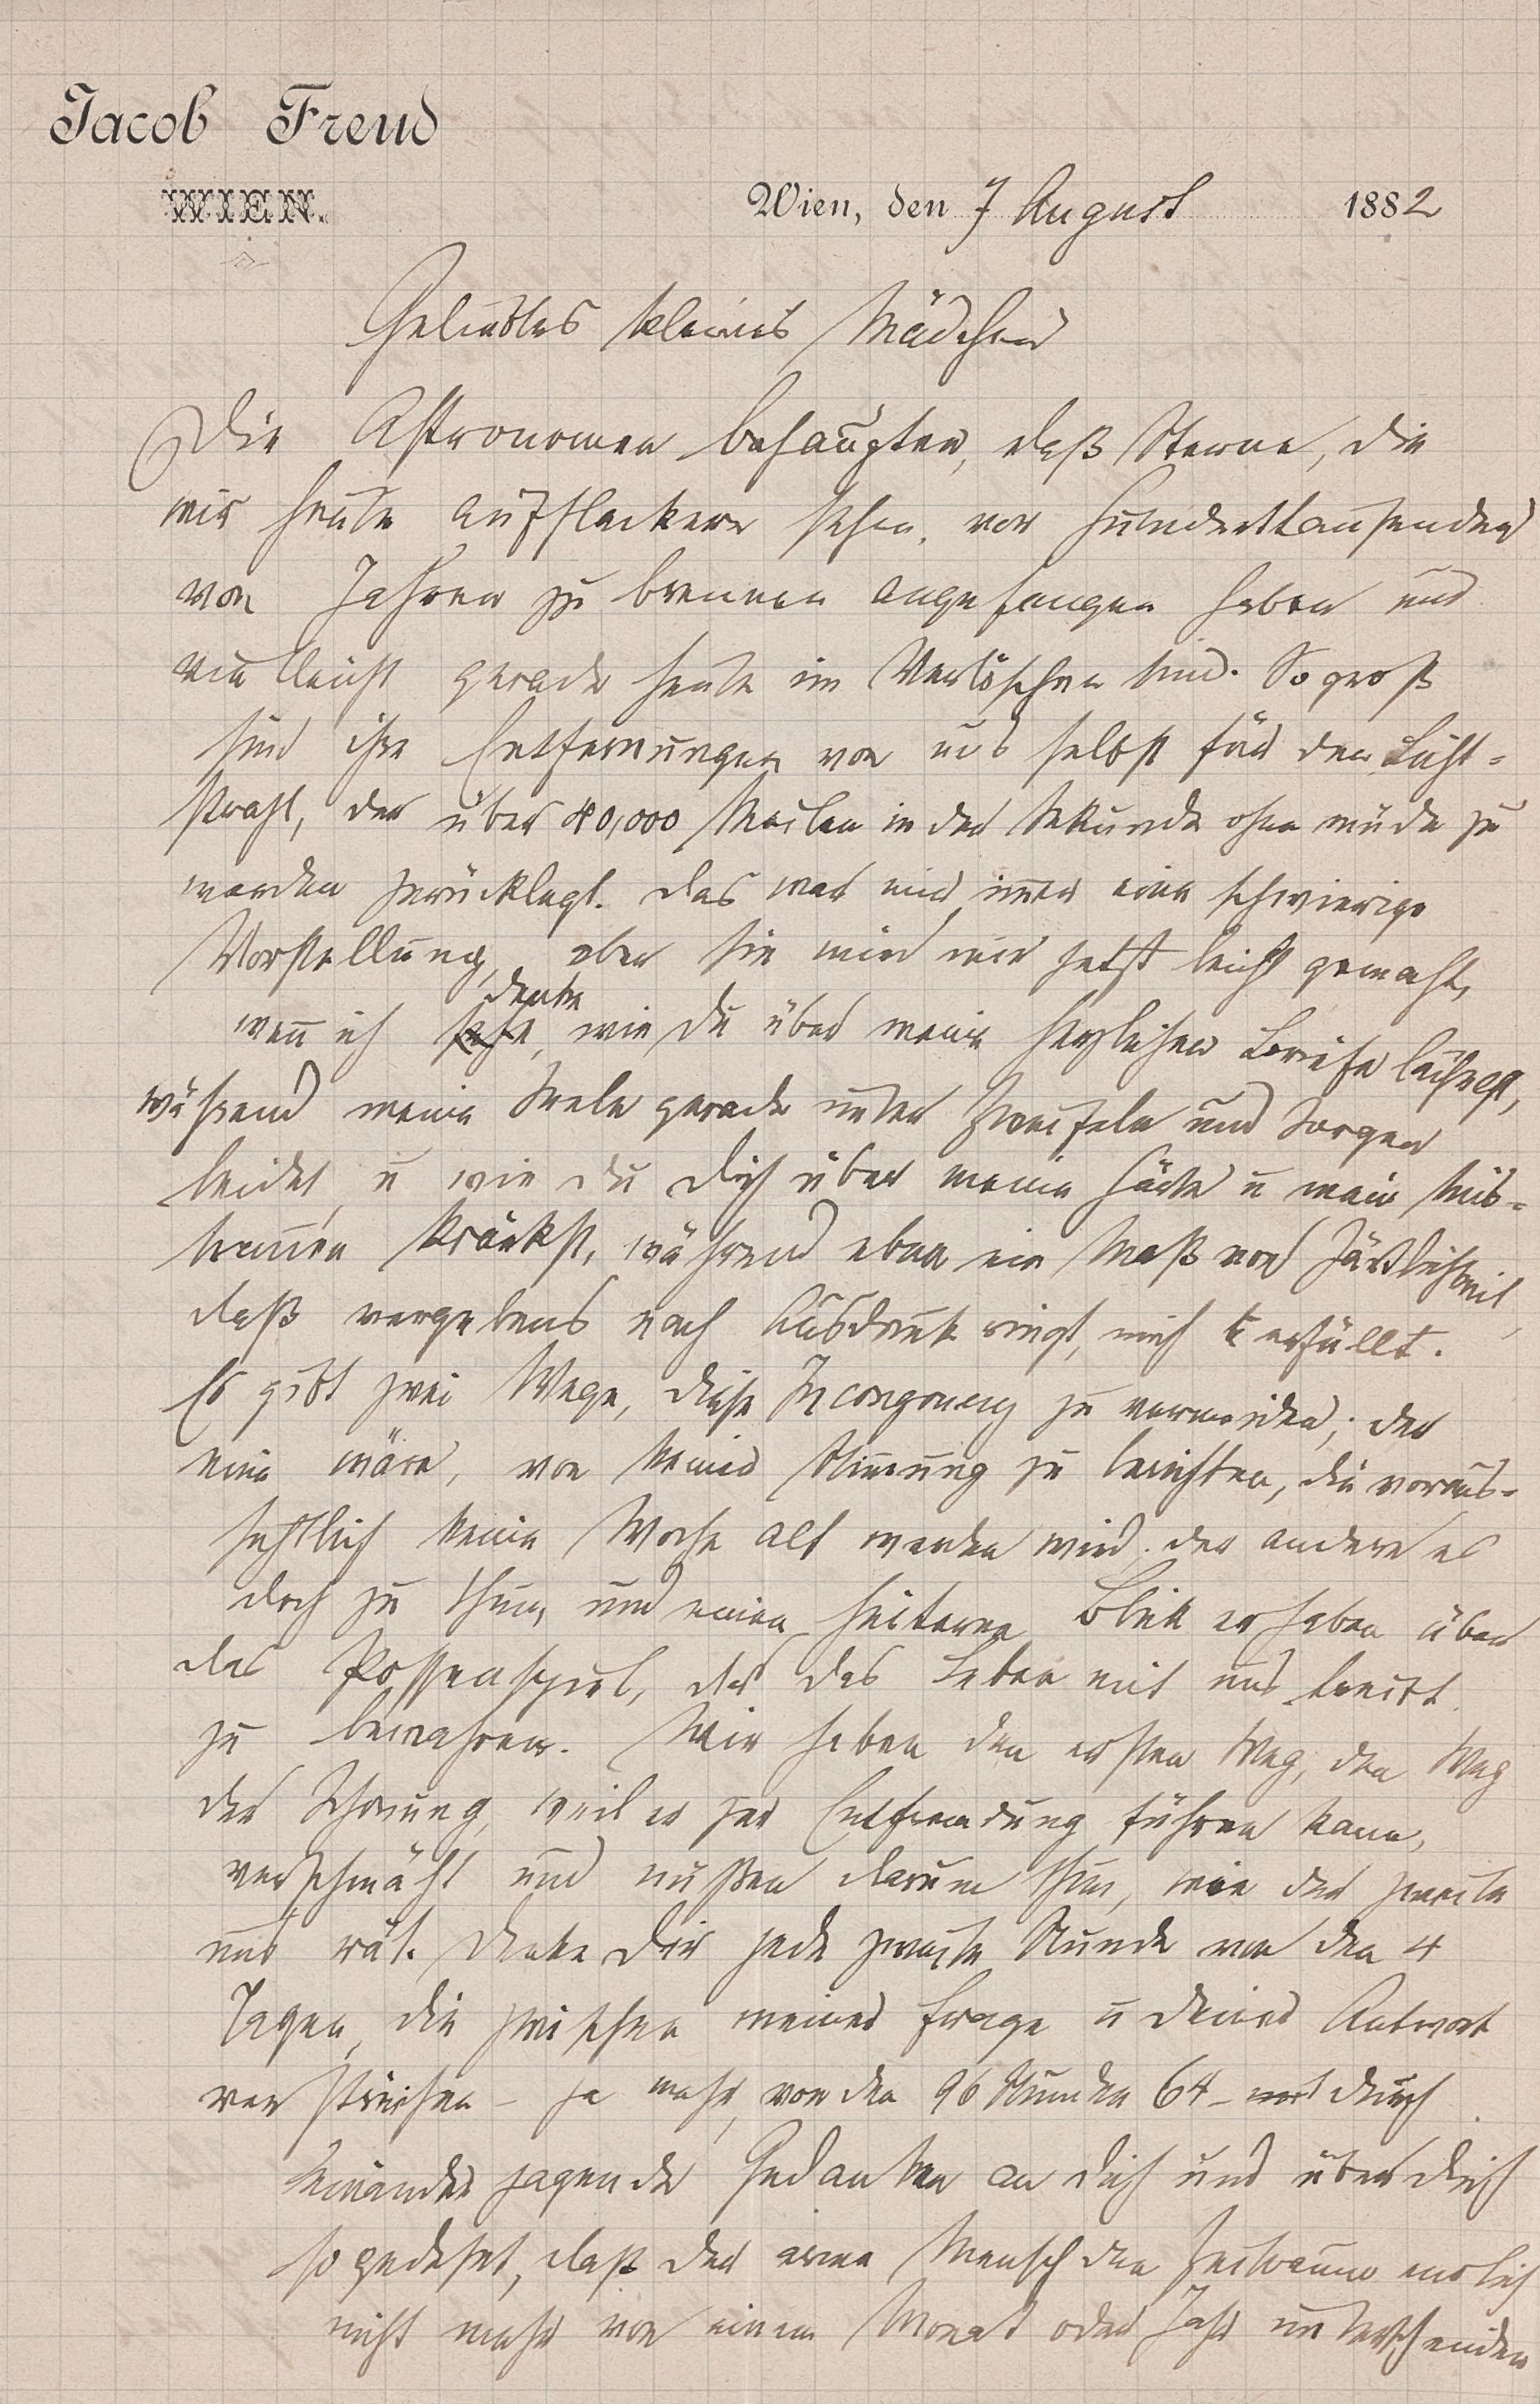 Jacob Freud
WIEN.
Wien, den 7 August 1882
Geliebtes kleines Mädchen
Die Astronomen behaupten, daß Sterne, die
wir heute aufflackern sehen, vor hunderttausenden
von Jahren zu brennen angefangen haben und
vielleicht gerade heute im Verlöschen sind. So groß
sind ihre Entfernungen von uns selbst für den Licht-
strahl, der über 40,000 Meilen in der Sekunde ohne müde zu
werden zurücklegt. Das war mir immer eine schwierige
Vorstellung, aber sie wird mir jetzt leicht gemacht,
denke
wenn ich sehe, wie du über meine herzlichen Briefe lächelst,
während meine Seele gerade unter Zweifeln und Sorgen
leidet, u wie du dich über meine Härte u mein Mis-
trauen kränkst, während eben ein Maß von Zärtlichkeit,
daß vergebens nach Ausdruck ringt, mich erfüllt.
Es gibt zwei Wege, diese Incongruenz zu vermeiden; der
eine wäre, von keiner Stimmung zu berichten, die voraus-
sichtlich keine Woche alt werden wird, der andere es
doch zu thun, und einen heiteren Blick erhaben über
das Possenspiel, das das Leben mit uns treibt
zu bewahren. Wir haben den ersten Weg, den Weg
der Schonung, weil er zur Entfremdung führen kann,
verschmäht und müßen darum thun, wie der zweite
uns rät. Denke dir jede zweite Stunde von den 4
Tagen, die zwischen meiner Frage u deiner Antwort
verstreichen – ja mehr, von den 96 Stunden 64 – durch
einander jagende Gedanken an dich und über dich
so gedehnt, daß der arme Mensch den Zeitraum endlich
nicht mehr von einem Monat oder Jahr unterscheiden